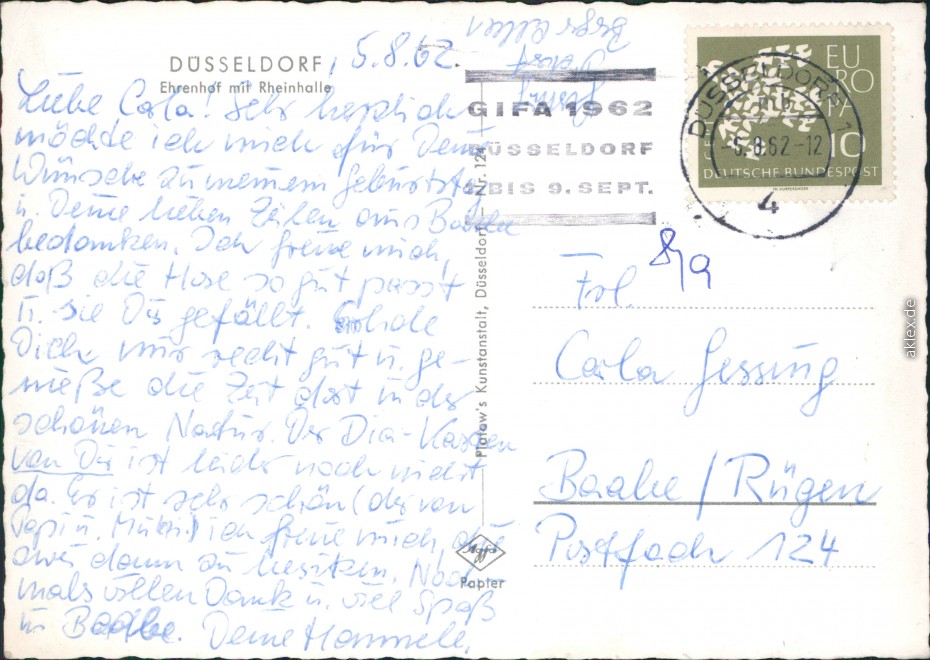 DÜSSELDORF
Ehrenhof mit Rheinhalle
5.8.62.
Liebe Carla! Sehr herzlich
möchte ich mich für Deine
Wünsche zu meinem Geburtstag
u. Deine lieben Zeilen aus Baabe
bedanken. Ich freue mich,
daß die Hose so gut passt
u. sie Dir gefällt. Erhole
Dich nur recht gut u. ge-
nieße die Zeit dort in der
schönen Natur. Der Dia-Kasten
von Dir ist leider noch nicht
da. Er ist sehr schön (der von
Papi u. Mutti) ich freue mich, die
zwei dann zu besitzen. Noch-
mals vielen Dank u. viel Spaß
in Baabe. Deine Hannele.
GIFA 1962
DÜSSELDORF
BIS 9. SEPT.
DÜSSELDORF
-6.8.62-12
4
EUROPA
10
DEUTSCHE BUNDESPOST
Platow's Kunstanstalt, Düsseldorf - Nr. 124
Agfa
Papier
Frl.
Carla Gessing
Baabe/Rügen
Postfach 124
aklex.de